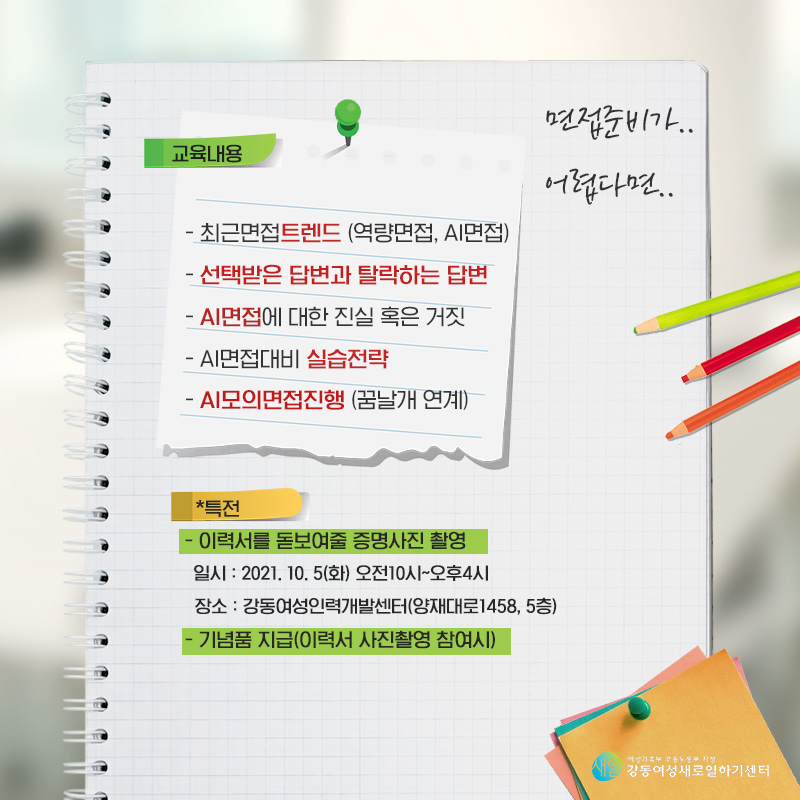 면접준비가..
어렵다면..
교육내용
- 최근면접트렌드 (역량면접, AI면접)
- 선택받은 답변과 탈락하는 답변
- AI면접에 대한 진실 혹은 거짓
- AI면접대비 실습전략
- AI모의면접진행 (꿈날개 연계)
*특전
- 이력서를 돋보여줄 증명사진 촬영
일시 : 2021. 10. 5(화) 오전10시~오후4시
장소 : 강동여성인력개발센터(양재대로1458, 5층)
- 기념품 지급(이력서 사진촬영 참여시)
여성가족부 고용노동부 지정
새일 강동여성새로일하기센터